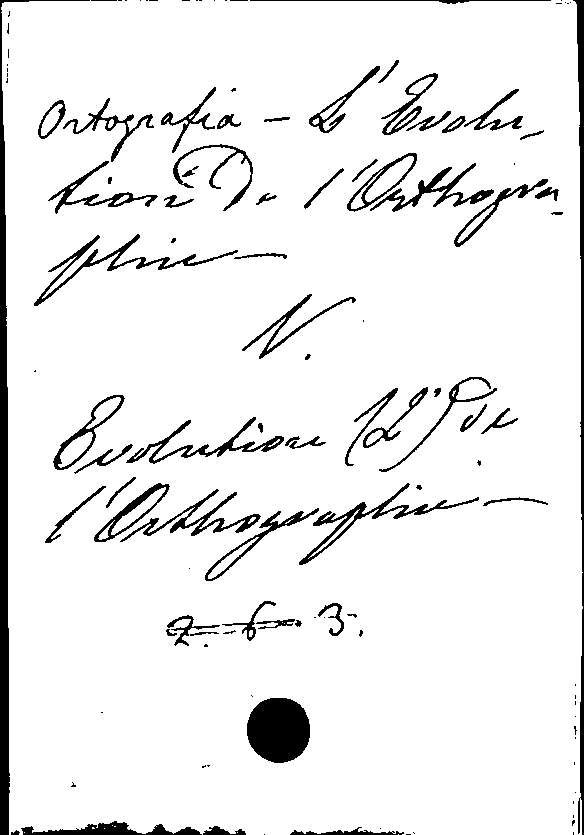 Ortografia - L'Evolu-
tion De l'Orthogra-
phie -
V.
Evolution (L') de
l'Orthographie -
2. 6 3.